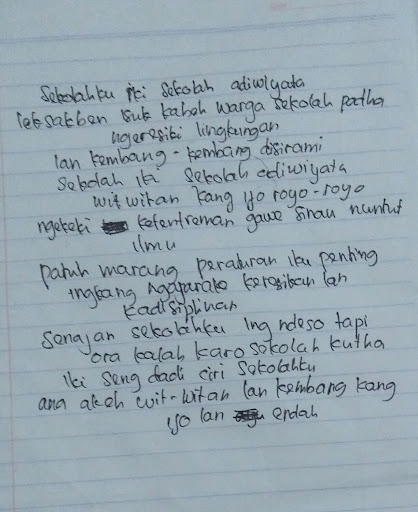 Sekolahku iki sekolah adiwiyata
Saksakben isuk kabeh warga sekolah padha
ngeresiki lingkungan
lan kembang-kembang disirami
Sekolah iki sekolah adiwiyata
wit witan kang ijo royo-royo
ngekeki ketentreman gawe sinau nuntut
ilmu
patuh marang peraturan iku penting
ingkang ngajarake keresikan lan
kadisiplinan
Senajan sekolahku ing ndeso tapi
ora kalah karo sekolah kutha
iki seng dadi ciri sekolahku
ana akeh wit-witan lan kembang kang
ijo lan endah